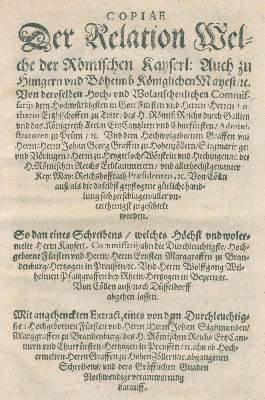 COPIAE
Der Relation Wel-
che der Römischen Kayserl: Auch zu
Hungern und Böheimb Königlichen Mayest: ꝛc.
Von deroselben Hoch und Wolansehenlichen Commiss-
Herrn Herrn
Ertzbischoffen zu Trier / des H. Römis: Reichs durch Gallien
und das Königreich Ertz Cantzlern und Churfürsten / Admini-
stratorn zu Prüm / ꝛc. Und dem Hochwolgebornen Graffen und
Herrn / Herrn Johan Georg Graffen zu Hohenzollern / Sigmarin-
gen und Herrn zu und ꝛc. des
H. Römischen Reichs Erbcammerern / und
Key: May: Reichshoffraths Præsidenten / ꝛc. Von Cölln
auß als die daselbst gepflogene gütliche hand-
lung sich zerschlagen / aller un-
terthenigst zugeschickt
worden.
So dan eines Schreibens / welches Höchst und woler-
melte Herrn Kayserl. Commissarij ahn die Durchleuchtigste / Hoch-
geborne Fürsten und Herrn / Herrn Ernsten Marggraffen zu Bran-
denburg Hertzogen in Preussen / ꝛc. Und Herrn Wolffgang Wil-
helmen Pfaltzgraffen bey Rhein Hertzogen in Beyern / ꝛc.
Von Cölln auß nach Düsseldorff
abgehen lassen.
Mit angehenckten Extract, eines von dem Durchleuchtig-
Hochgebornen Fürsten und Herrn / Herrn Johan Sigißmunden /
Marggraffen zu Brandenburg / des H. Römischen Reichs Ertz Cam-
merern und Churfürsten Hertzogen in Preussen / ꝛc. ahn ob Hoch-
ermelten Herrn Graffen zu Hohen Zollern / ꝛc. abgangenen
Schreibens / und dero Gräfflichen Gnaden
Nothwendige verantwortung
darauff.